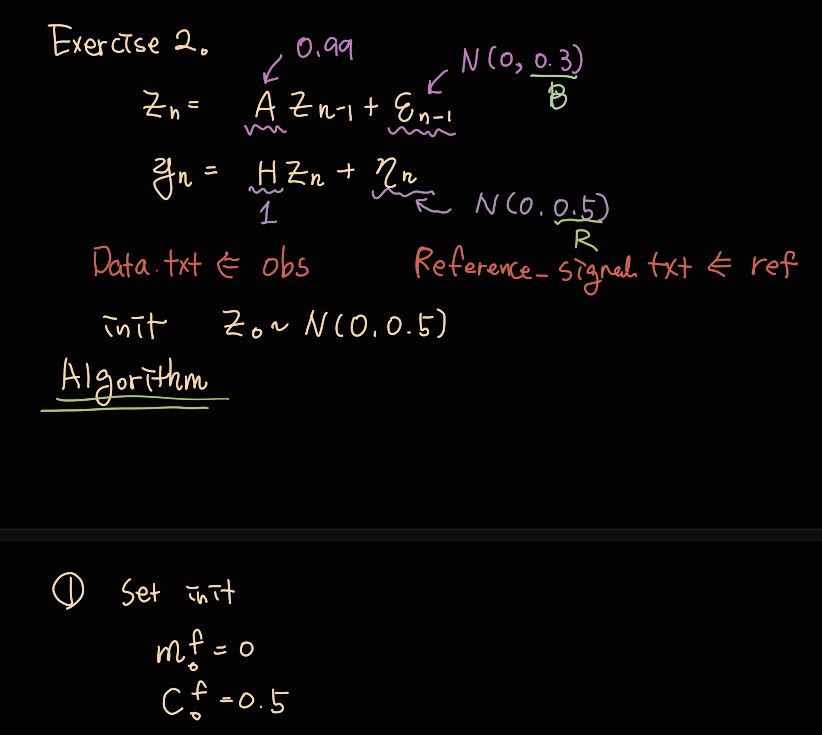 Exercise 2.
0.99
N(0, 0.3)
B
Zn = A Zn-1 + εn-1
yn = H Zn + ηn
1
N(0. 0.5)
R
Data.txt ⇐ obs Reference_signal.txt ⇐ ref
init Z0 ~ N(0, 0.5)
Algorithm
① Set init
m0^f = 0
C0^f = 0.5